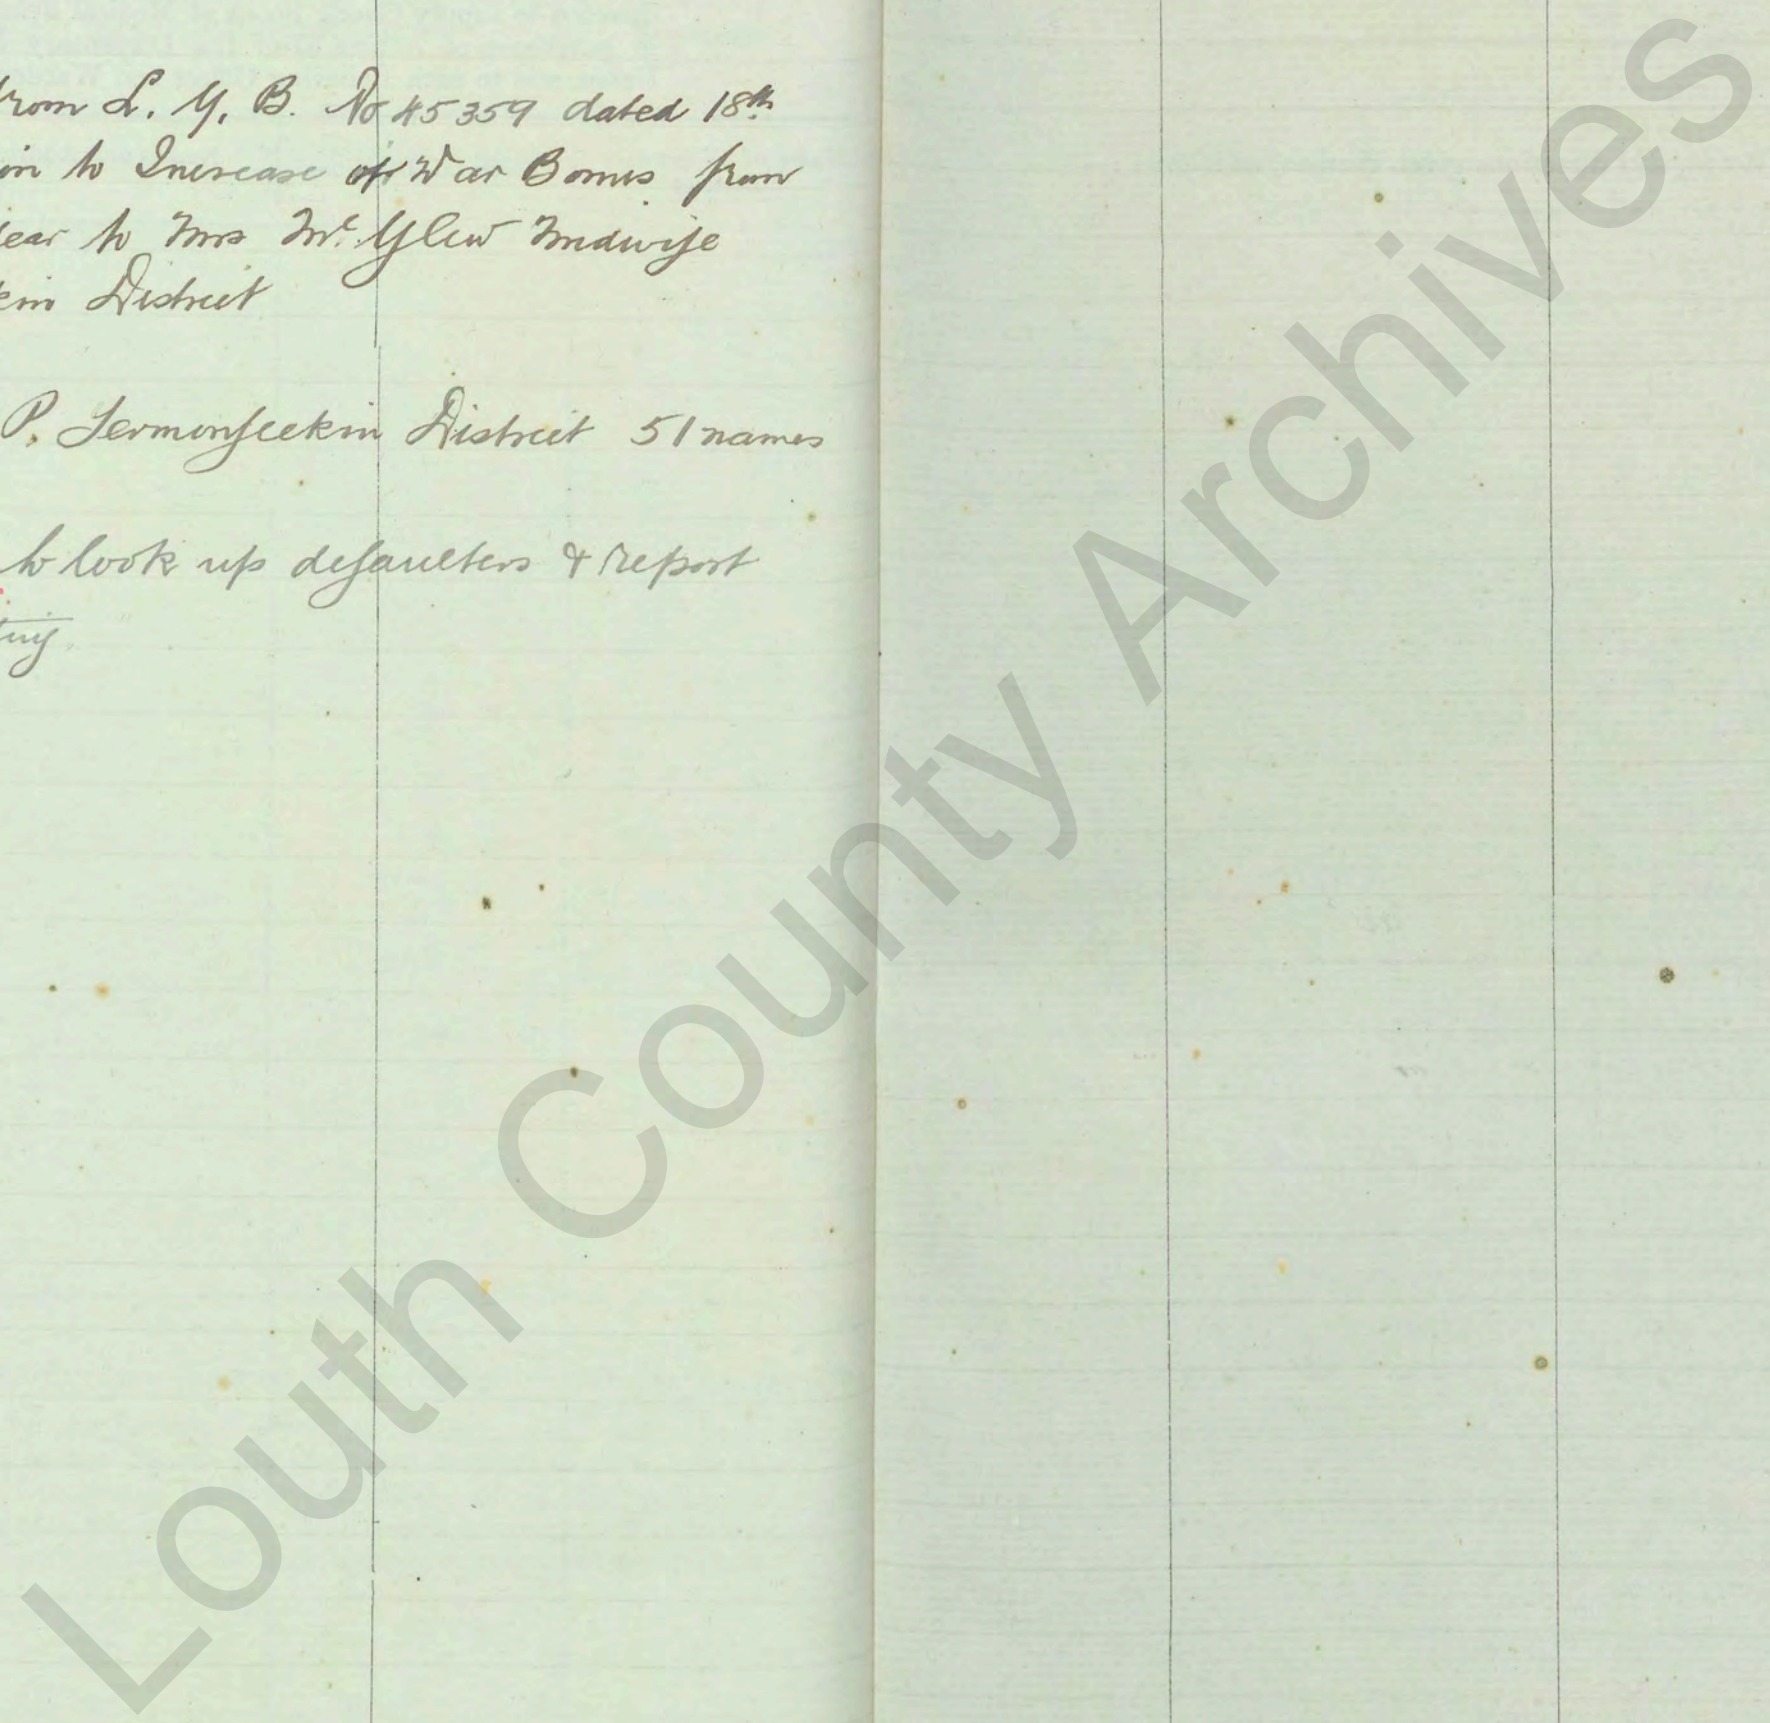 from L. G. B. No 45359 dated 18th
to Increase of War Bonus from
to Mrs McGlew Midwife
District
P. Termonfeckin District 51 names
to look up defaulters & report
Louth County Archives